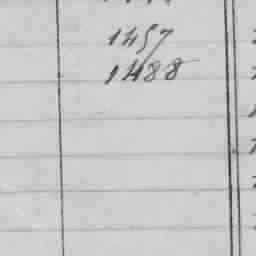 1457
1488